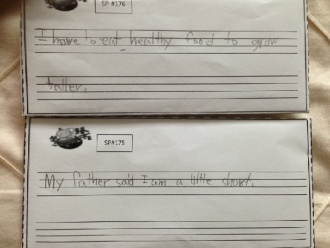 SP #176
I have to eat healthy food to grow
taller.
SP #175
My father said I am a little short.